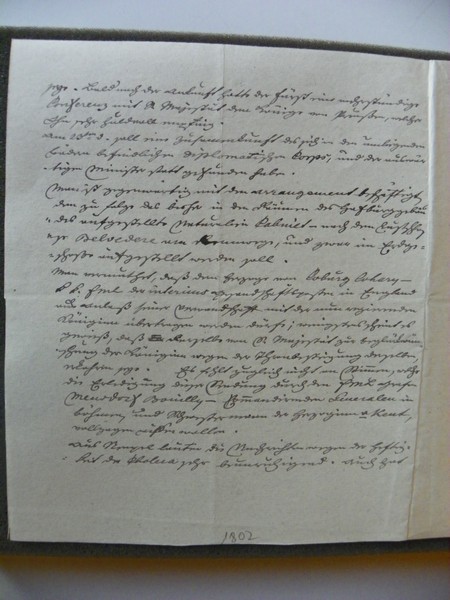 Bald nach der Ankunft hatte der Fürst eine mehrstündige
Conferenz mit S. Majestät dem Könige von Preußen, welcher
ihn sehr huldvoll empfing.
Am d. soll eine Zusammenkunft des sich in den umliegenden
Bädern befindlichen diplomatischen Corps, und der auswär-
tigen Minister statt gefunden haben.
Man ist gegenwärtig mit dem Arrangement beschäftigt,
dem zu folge das bisher in den Räumen des Hofburggebäu-
des aufgestellte Naturalien Cabinet nach dem Lustschlo-
ße Belvedere am Rennwege, und zwar im Erdge-
schoße aufgestellt werden soll.
Man vermuthet, daß dem Herzoge von Coburg Cohary
k. k. FML der interims Gesandschaftsposten in England
aus Anlaß seiner Verwandschaft mit der nun regierenden
Königinn übertragen werden dürfte; wenigstens scheint es
gewiß, daß derselbe von S. Majestät zur Beglückwün-
schung der Königinn wegen der Thronbesteigung derselben,
Es fehlt zugleich nicht an Stimmen, welche
die Erledigung dieser Sendung durch den FML Grafen
Mensdorf Pouilly Commandirenden Generalen in
Böhmen, und Schwestermann der Herzoginn v. Kent,
vollzogen wissen wollen.
Aus Neapel lauten die Nachrichten wegen der Heftig-
keit der Cholera sehr beunruhigend. Auch hat
1802